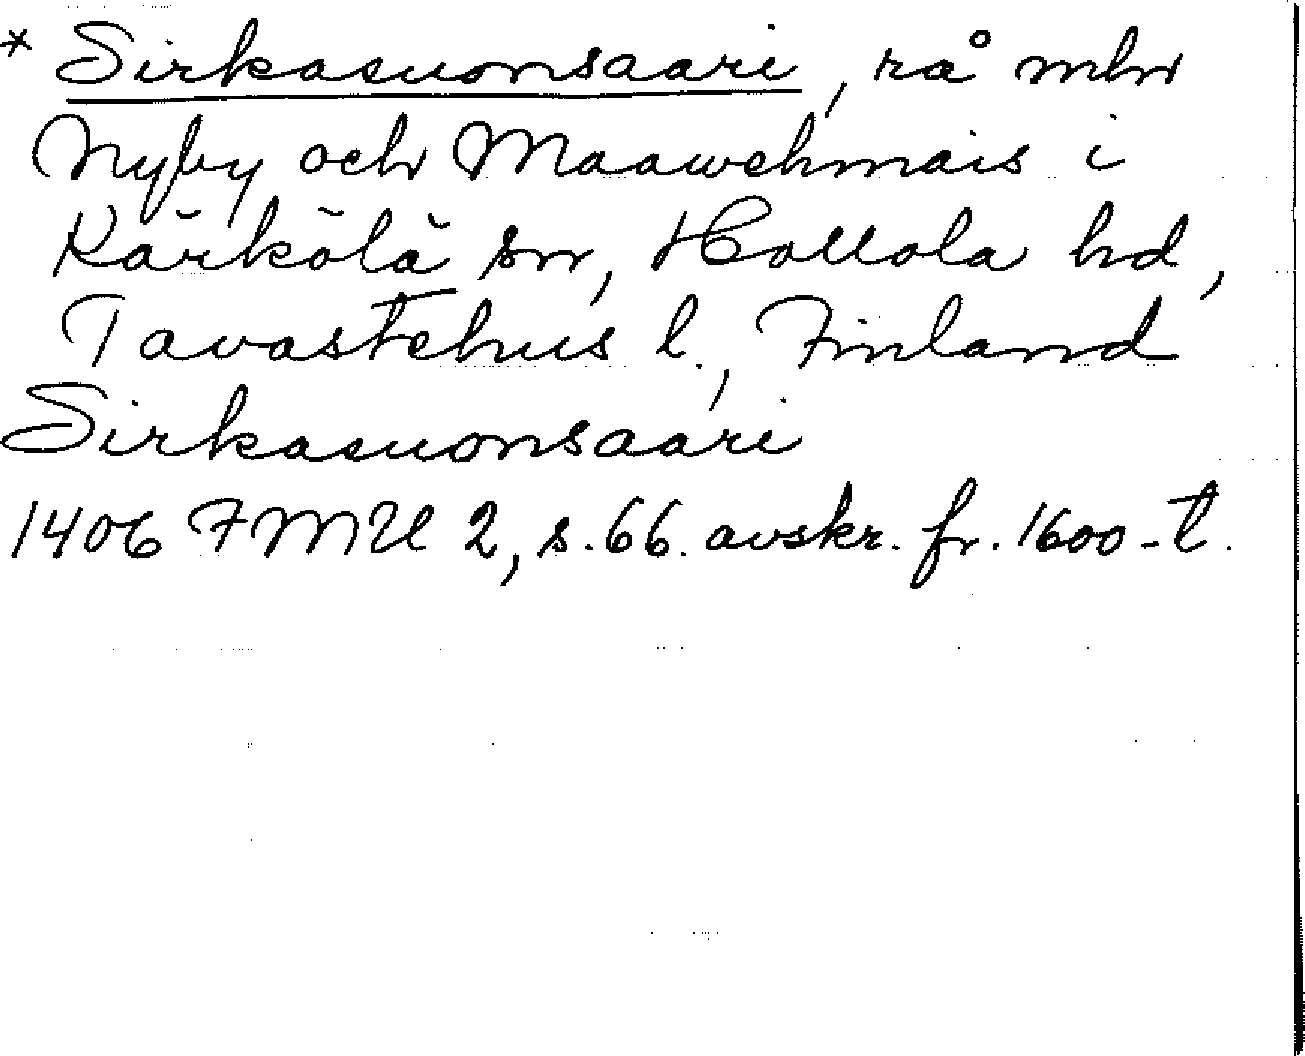 * Sirkasuonsaari, rå mln
Nyby och Maawehmais i
Kärkölä sn, Hollola hd,
Tavastehus l., Finland
Sirkasuonsaari
1406 FMU 2, s. 66. avskr. fr. 1600-t.